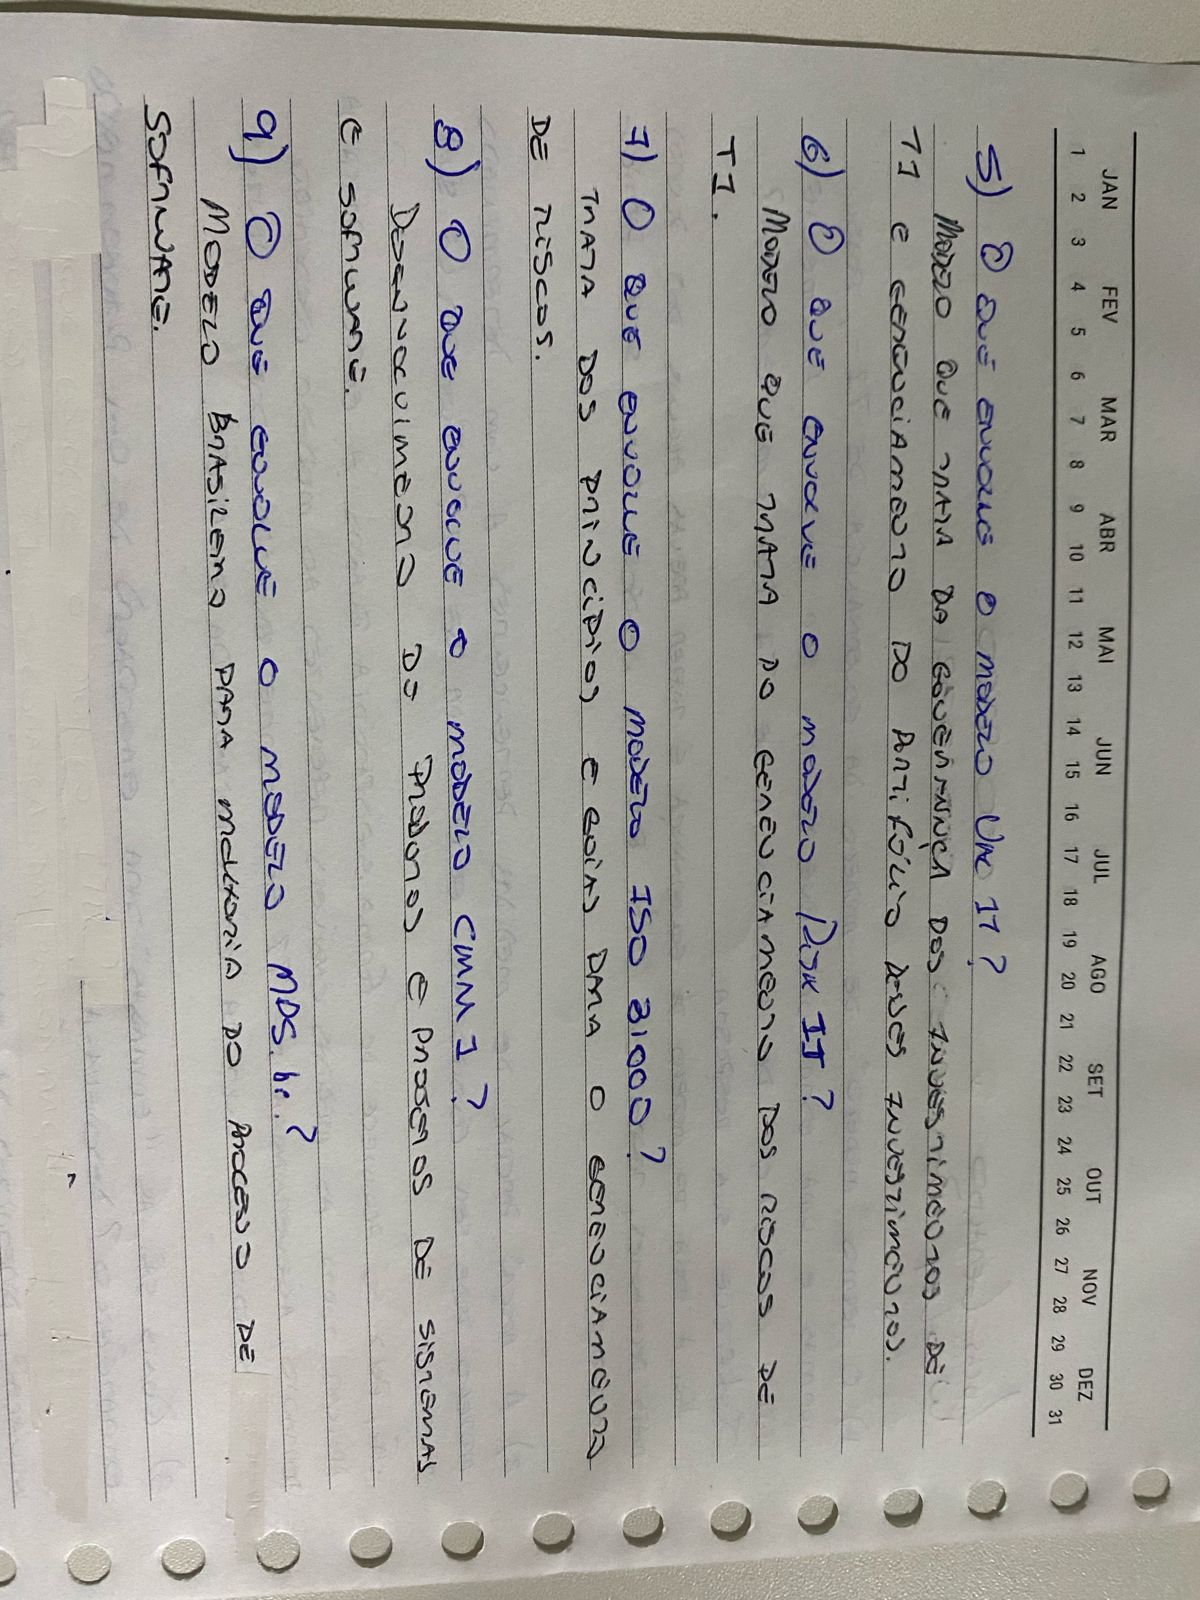 JAN FEV MAR ABR MAI JUN JUL AGO SET OUT NOV DEZ
1 2 3 4 5 6 7 8 9 10 11 12 13 14 15 16 17 18 19 20 21 22 23 24 25 26 27 28 29 30 31
5) O que envolve o modelo Val IT?
Modelo que trata da governança dos investimentos de
TI e gerenciamento do portifólio desses investimentos.
6) O que envolve o modelo Risk IT?
Modelo que trata do gerenciamento dos riscos de
TI.
7) O que envolve o modelo ISO 31000?
Trata dos princípios e guias para o gerenciamento
de riscos.
8) O que envolve o modelo CMM I?
Desenvolvimento de produtos e projetos de sistemas
e software.
9) O que envolve o modelo MPS.br?
Modelo brasileiro para melhoria do processo de
software.